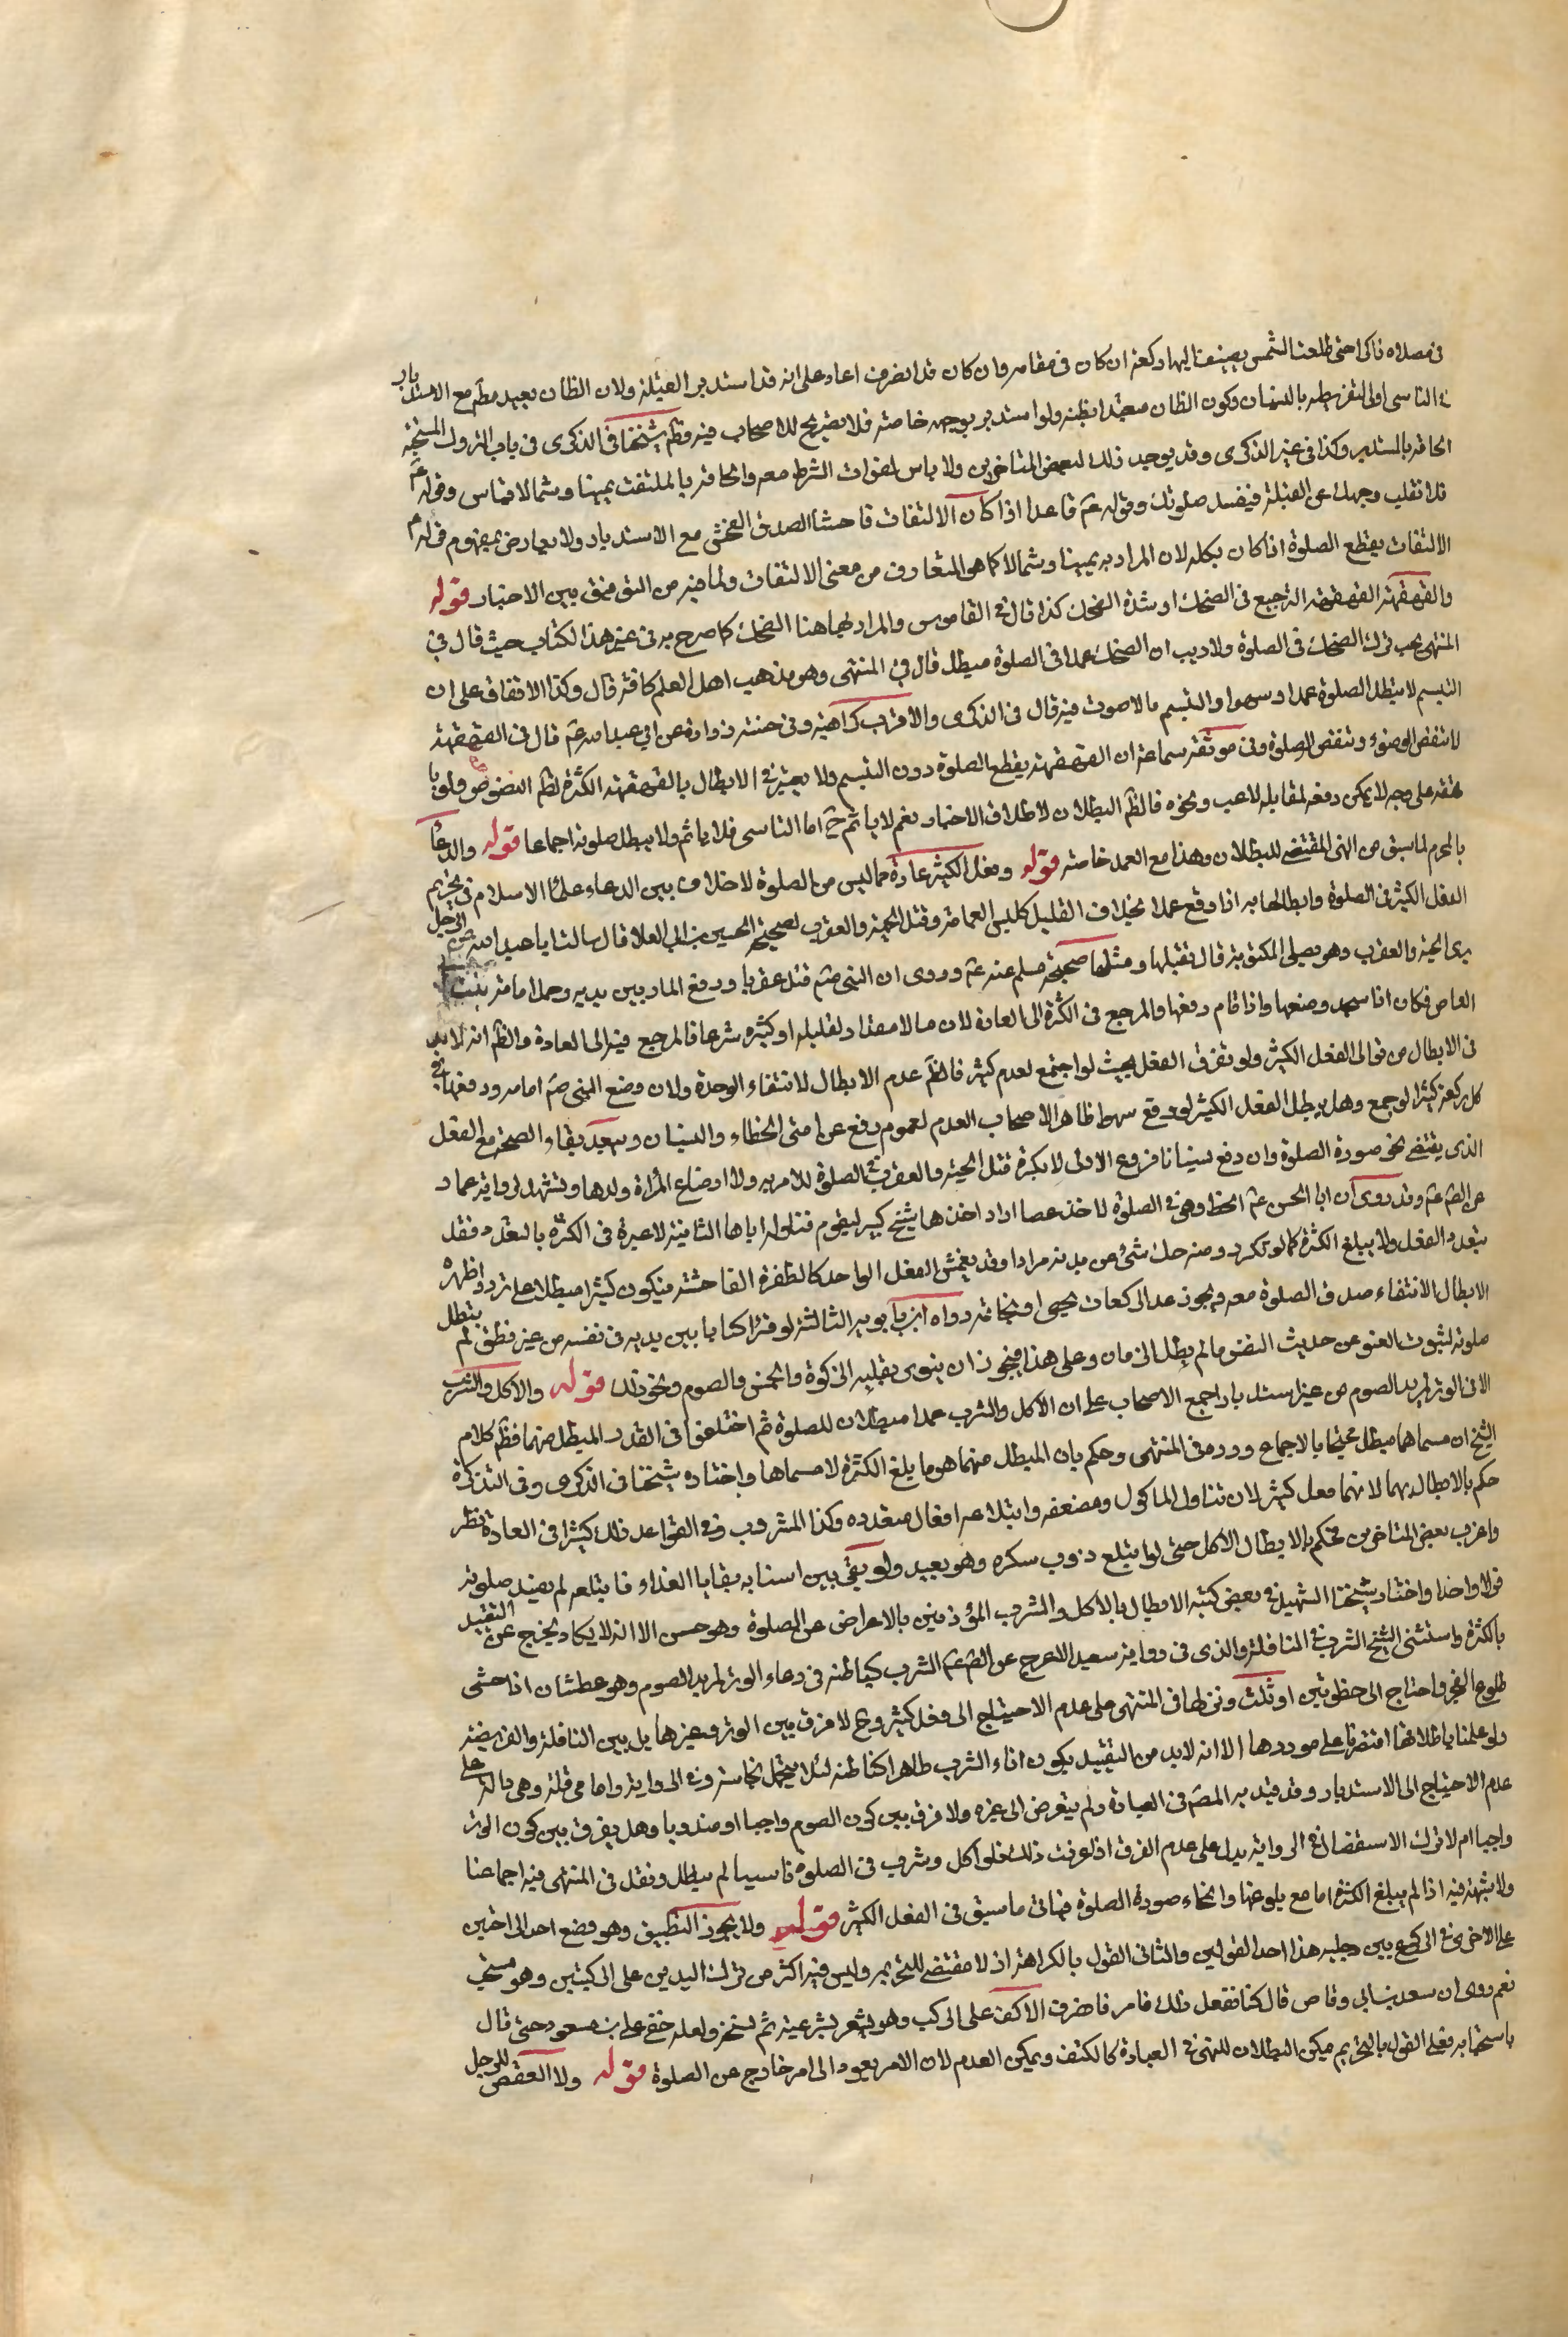 في مصلاه ذاكرا حتى طلعت الشمس يضيف اليها ركعة ان كان في مقامه وان كان قد انصرف اعاد على انه قد استدبر القبلة ولان الظان يعيد مطلقا مع الاستدبار
فالناسي اولى لتفريطه بالنسيان وكون الظان متعبدا بظنه ولو استدبر بوجهه خاصة فلا تصريح للاصحاب فيه وظم شيخنا في الذكرى في باب التروك المستحبة
الحاقه بالمستدبر وكذا في غير الذكرى وقد يوجد ذلك لبعض المتاخرين ولا باس لفوات الشرط معه والحاقه بالملتفت يمينا وشمالا قياس وقوله عم
فلا تقلب وجهك عن القبلة فتفسد صلوتك وقوله عم قاعدا اذا كان الالتفات فاحشا لصدق الفحش مع الاستدبار ولا يعارض بمفهوم قوله عم
الالتفات يقطع الصلوة اذا كان بكله لان المراد به يمينا وشمالا كما هو المتعارف من معنى الالتفات ولما فيه من التوفيق بين الاخبار قوله
والقهقهة القهقهة الترجيع في الضحك او شدة الضحك كذا قال في القاموس والمراد بها هنا الضحك كما صرح به في غير هذا الكتاب حيث قال في
المنتهى يجب ترك الضحك في الصلوة ولا ريب ان الضحك عمدا في الصلوة مبطل قال في المنتهى وهو مذهب اهل العلم كافة قال وكذا الاتفاق على ان
التبسم لا يبطل الصلوة عمدا وسهوا والتبسم ما لا صوت فيه قال في الذكرى والاقرب كراهيته وفي حسنة زرارة عن ابي عبد الله عم قال في القهقهة
لا تنقض الوضوء وتنقض الصلوة وفي موثقة سماعة ان القهقهة يقطع الصلوة دون التبسم ولا يعتبر في الابطال بالقهقهة الكثرة لظم النصوص ولو
قهقه على وجه لا يمكن دفعه لمقابلة لاعب ونحوه فالظم البطلان لاطلاق الاخبار نعم لا ياثم ح اما الناسي فلا ياثم ولا يبطل صلوته اجماعا قوله والدعاء
بالمحرم لما سبق من النهي المقتضي للبطلان وهذا مع العمد خاصة قوله وفعل الكثير عادة مما ليس من الصلوة لا خلاف بين علماء الاسلام في تحريم
الفعل الكثير في الصلوة وابطالها به اذا وقع عمدا بخلاف القليل كلبس العمامة وقتل الحية والعقرب لصحيحة الحسين بن ابي العلا قال سالت ابا عبد الله عن الرجل
يرى الحية والعقرب وهو يصلي المكتوبة قال يقتلها ومثلها صحيحة مسلم عنه عم وروى ان النبي صم قتل عقربا ودفع المار بين يديه وحمل امامة بنت ابي
العاص فكان اذا سجد وضعها واذا قام رفعها والمرجع في الكثرة الى العادة لان ما لا مقدار لقليله او كثيره شرعا فالمرجع فيه الى العادة والظم انه لا بد
في الابطال من توالي الفعل الكثير ولو تفرق الفعل بحيث لو اجتمع لعد كثيرا فالظم عدم الابطال لانتفاء الوحدة ولان وضع النبي صم امامه ورفعها في
كل ركعة كثير لو جمع وهل يبطل الفعل الكثير لو وقع سهوا ظاهر الاصحاب العدم لعموم رفع عن امتي الخطاء والنسيان ويبعد بقاء الصحة مع الفعل
الذي يقتضي محو صورة الصلوة وان رفع نسيانا فروع الاول لا يكره قتل الحية والعقرب في الصلوة للامر به ولا ارضاع المراة ولدها ويشهد له رواية عمار
عن الصم عم وقد روى ان ابا الحسن عم انحط وهو في الصلوة لاخذ عصا اراد اخذها شيخ كبير ليقوم فناوله اياها الثانية لا عبرة في الكثرة بالتعدد فقد
يتعدد الفعل ولا يبلغ الكثرة كما لو تكرر ومنه حك شئ من بدنه مرارا وقد يفحش الفعل الواحد كالطفرة الفاحشة فيكون كثيرا مبطلا على تردد اظهره
الابطال لانتفاء صدق الصلوة معه ويجوز عد الركعات بحصى او بخاتمه رواه ابن بابويه الثالثة لو قرا كتابا بين يديه في نفسه من غير نطق لم يبطل
صلوته لثبوت العفو عن حديث النفس ما لم يطل الزمان وعلى هذا فيجوز ان ينوي بقلبه الزكوة والخمس والصوم ونحو ذلك قوله والاكل والشرب
الا في الوتر لمريد الصوم من غير استدبار اجمع الاصحاب على ان الاكل والشرب عمدا مبطلان للصلوة ثم اختلفوا في القدر المبطل منهما فظم كلام
الشيخ ان مسماهما مبطل محتجا بالاجماع ورده في المنتهى وحكم بان المبطل منهما هو ما يبلغ الكثرة لا مسماها واختاره شيخنا في الذكرى وفي التذكرة
حكم بالابطال بهما لانهما فعل كثير لان تناول الماكول ومضغه وابتلاعه افعال متعدده وكذا المشروب وفي القواعد ذلك كثيرا في العادة نظر
واغرب بعض المتاخرين فحكم بالابطال الاكل حتى لو ابتلع ذوب سكره وهو بعيد ولو بقي بين اسنانه بقايا الغذاء فابتلعه لم يفسد صلوته
قولا واحدا واختار شيخنا الشهيد في بعض كتبه الابطال بالاكل والشرب المؤذنين بالاعراض عن الصلوة وهو حسن الا انه لا يكاد يخرج عن التقييد
بالكثرة واستثنى الشيخ الشرب في النافلة والذي في رواية سعيد الاعرج عن الصم عم الشرب كياطنه في دعاء الوتر لمريد الصوم وهو عطشان اذا خشى
طلوع الفجر واحتاج الى خطوتين او ثلث ونزلها في المنتهى على عدم الاحتياج الى فعل كثير وح لا فرق بين الوتر وغيرها بل بين النافلة والفريضة
ولو عملنا باطلاقها اقتصرنا على موردها الا انه لا بد من التقييد بكون اناء الشرب طاهرا لئلا يحتمل نجاسة وفي الرواية واما مي قلة وهي دالة على
عدم الاحتياج الى الاستدبار وقد قيد به المصم في العبادة ولم يتعرض الى غيره ولا فرق بين كون الصوم واجبا او مندوبا وهل يفرق بين كون الوتر
واجبا ام لا ترك الاستفصال في الرواية يدل على عدم الفرق اذا عرفت ذلك فلو اكل وشرب في الصلوة ناسيا لم يبطل ونقل في المنتهى فيه اجماعنا
ولا شبهة فيه اذا لم يبلغ الكثرة اما مع بلوغها وانمحاء صورة الصلوة فياتي ما سبق في الفعل الكثير قوله ولا يجوز التطبيق وهو وضع احد الراحتين
على الاخرى في الركوع بين رجليه هذا احد القولين والثاني القول بالكراهة اذ لا مقتضى للتحريم وليس فيه اكثر من ترك اليدين على الركبتين وهو مستحب
نعم روى ان سعد بن ابي وقاص قال كنا نفعل ذلك فامر فاضرب الاكف على الركب وهو يشعر بشرعيته ثم نسخ ولعله خفي على ابن مسعود حتى قال
باستحبابه فعلى القول بالتحريم يمكن البطلان للنهي في العبادة كالكتف ويمكن العدم لان الامر يعود الى امر خارج عن الصلوة قوله ولا العقص للرجل